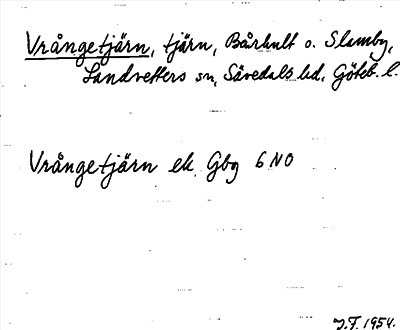 Vrångetjärn, tjärn, Bårhult o. Slamby,
Landvetters sn, Sävedals hd, Göteb. l.
Vrångetjärn ek. Gbg 6 NO
J.F. 1954.